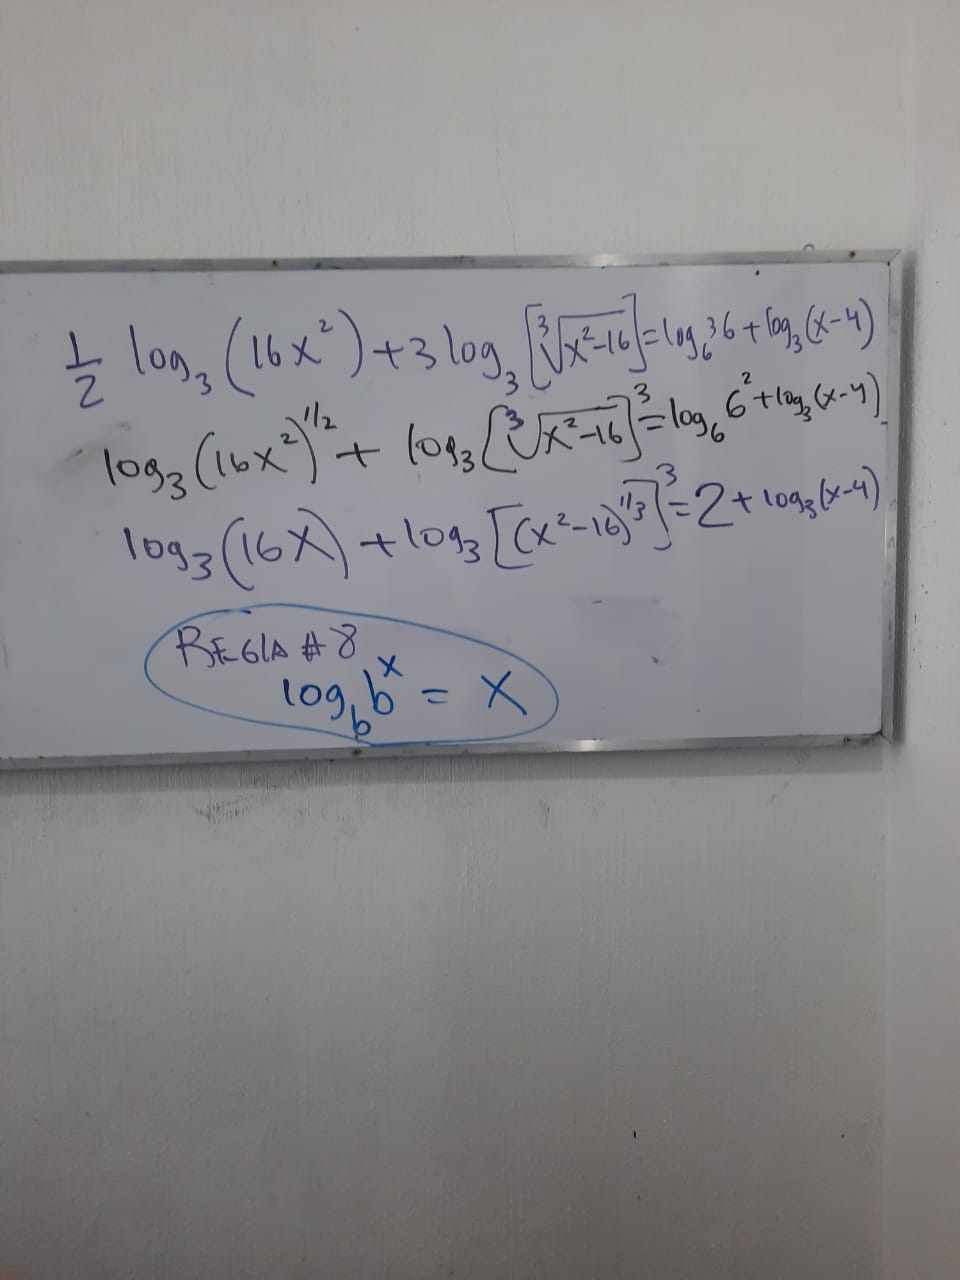 1/2 log₃(16x²)+3log₃[∛(x²-16)]=log₆36+log₃(x-4)
log₃(16x²)^1/2 + log₃[∛(x²-16)]³=log₆6²+log₃(x-4)
log₃(16x)+log₃[(x²-16)^1/3]³=2+log₃(x-4)
REGlA #8
log_b b^x = x